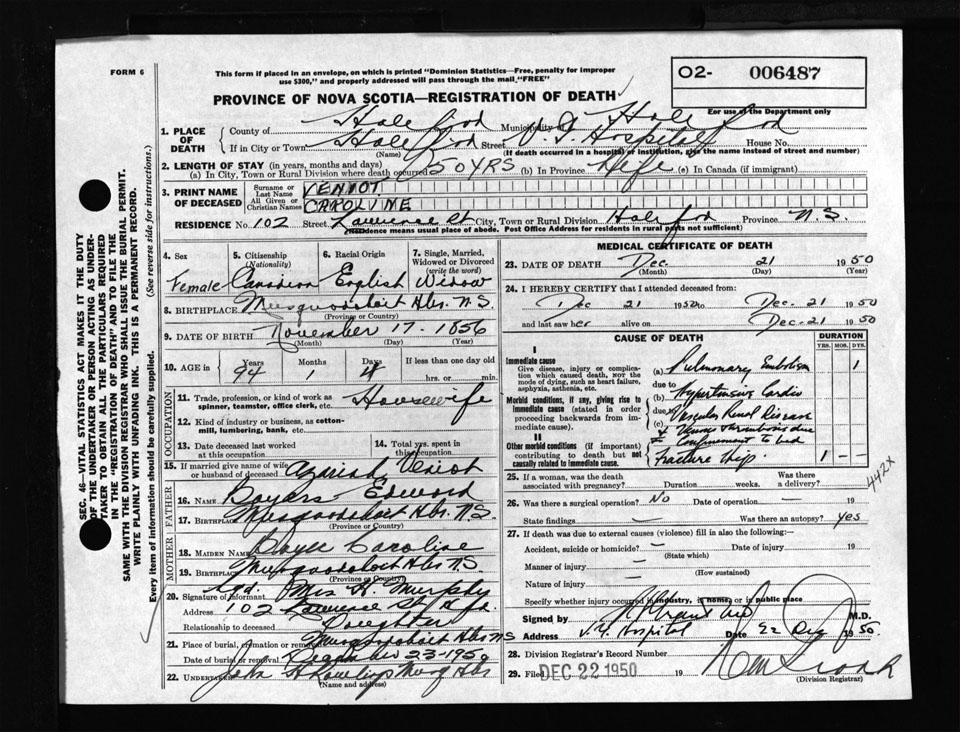 FORM 6
This form if placed in an envelope, on which is printed "Dominion Statistics—Free, penalty for improper
use $300," and properly addressed will pass through the mail "FREE"
O2- 006487
PROVINCE OF NOVA SCOTIA—REGISTRATION OF DEATH
For use of the Department only
1. PLACE OF DEATH
County of Municipality of
If in City or Town Street V.G. Hospital House No.
(Name) (If death occurred in a hospital or institution, give the name instead of street and number)
2. LENGTH OF STAY (in years, months and days)
(a) In City, Town or Rural Division where death occurred 50 YRS (b) In Province Life (c) In Canada (if immigrant)
3. PRINT NAME OF DECEASED
Surname or Last Name VENIOT
All Given or Christian Names CAROLINE
RESIDENCE No. 102 Street Lawrence St City, Town or Rural Division Province N.S.
(Residence means usual place of abode. Post Office Address for residents in rural parts not sufficient)
4. Sex 5. Citizenship (Nationality) 6. Racial Origin 7. Single, Married, Widowed or Divorced (write the word)
Female Canadian English Widow
8. BIRTHPLACE Musquodoboit Hbr. N.S.
(Province or Country)
9. DATE OF BIRTH November 17 - 1856
(Month) (Day) (Year)
10. AGE in Years Months Days If less than one day old
94 1 4 hrs. or min.
OCCUPATION
11. Trade, profession, or kind of work as spinner, teamster, office clerk, etc. Housewife
12. Kind of industry or business, as cotton-mill, lumbering, bank, etc.
13. Date deceased last worked at this occupation
14. Total yrs. spent in this occupation
15. If married give name of wife or husband of deceased Azariah Veniot
FATHER
16. NAME Boyers Edward
17. BIRTHPLACE Musquodoboit Hbr. N.S.
(Province or Country)
MOTHER
18. MAIDEN NAME Caroline
19. BIRTHPLACE Musquodoboit Hbr N.S.
(Province or Country)
20. Signature of informant Sgd. Mrs H. Murphy
Address 102 Lawrence St
Relationship to deceased Daughter
21. Place of burial, cremation or removal Musquodoboit Hbr NS
Date of burial or removal December 23-1950
22. UNDERTAKER
(Name and address)
MEDICAL CERTIFICATE OF DEATH
23. DATE OF DEATH Dec. 21 1950
(Month) (Day) (Year)
24. I HEREBY CERTIFY that I attended deceased from:
Dec 21 1950 to Dec. 21 1950
and last saw her alive on Dec-21 1950
CAUSE OF DEATH DURATION
YRS. MOS. DYS.
I
Immediate cause
Give disease, injury or complication which caused death, NOT the mode of dying, such as heart failure, asphyxia, asthenia, etc.
(a) Pulmonary Embolism 1
due to
Morbid conditions, if any, giving rise to immediate cause (stated in order proceeding backwards from immediate cause).
(b) Hypertensive Cardio
due to Vascular Renal Disease
(c) Venous thrombosis due
Confinement to bed
II
Other morbid conditions (if important) contributing to death but not causally related to immediate cause.
Fracture Hip. 1 — —
442X
25. If a woman, was the death associated with pregnancy? Duration weeks. Was there a delivery?
26. Was there a surgical operation? No Date of operation 19
State findings — Was there an autopsy? yes
27. If death was due to external causes (violence) fill in also the following:—
Accident, suicide or homicide? — Date of injury 19
(State which)
Manner of injury —
(How sustained)
Nature of injury —
Specify whether injury occurred in industry, in home, or in public place
Signed by M.D.
Address V.G. Hospital Date 22 Dec 1950
28. Division Registrar's Record Number
29. Filed DEC 22 1950 19
(Division Registrar)
SEC. 46—VITAL STATISTICS ACT MAKES IT THE DUTY
OF THE UNDERTAKER OR PERSON ACTING AS UNDERTAKER TO OBTAIN ALL THE PARTICULARS REQUIRED
IN THE "REGISTRATION OF DEATH" AND TO FILE THE
SAME WITH THE DIVISION REGISTRAR WHO SHALL ISSUE THE BURIAL PERMIT.
WRITE PLAINLY WITH UNFADING INK. THIS IS A PERMANENT RECORD.
Every item of information should be carefully supplied. (See reverse side for instructions.)